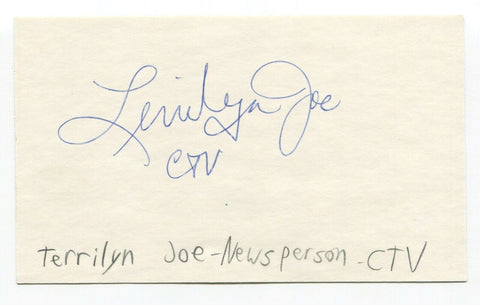 Terrilyn Joe
CTV
Terrilyn Joe-Newsperson-CTV